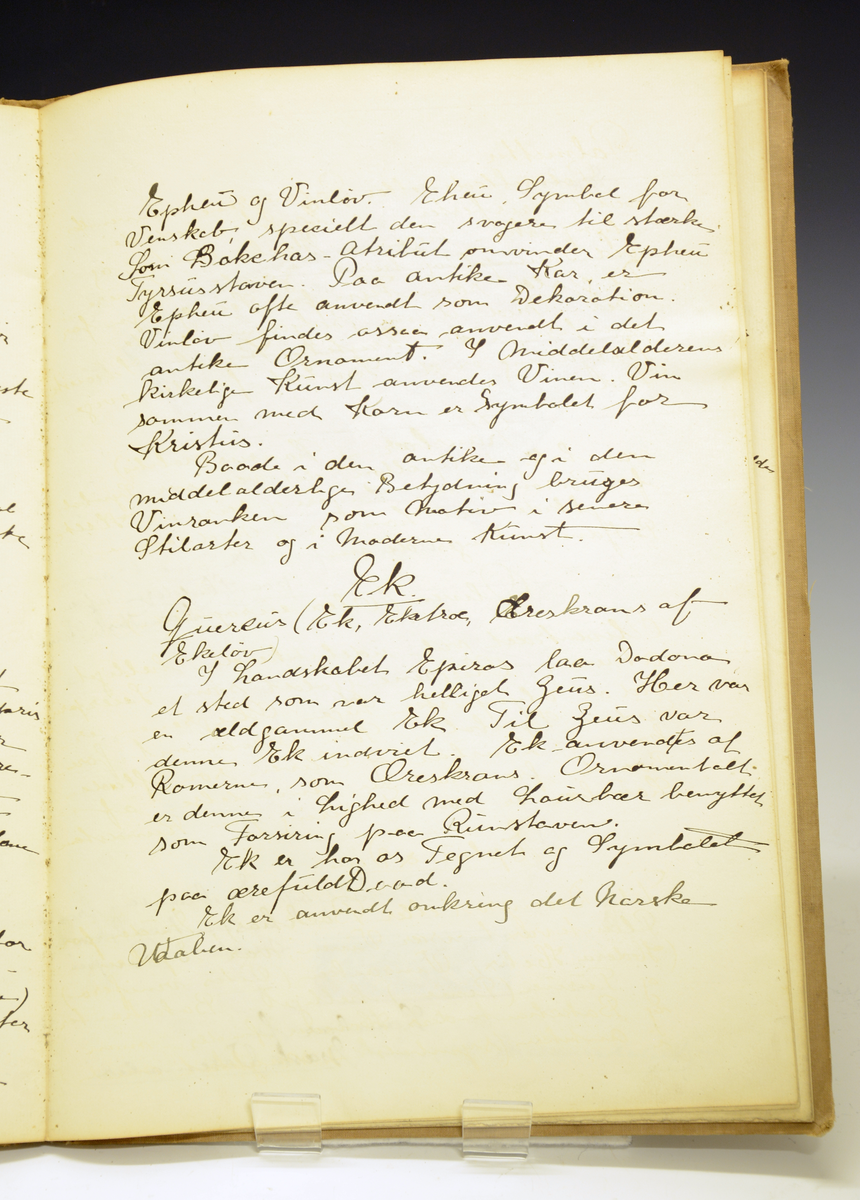 Epheu og Vinløv. Eheu, Symbol for
Venskab, specielt den svagere til stærke.
Som Bakchas-Atribut omvinder Epheu
Tyrsusstaven. Paa antike Kar, er
Epheu ofte anvendt som Dekoration.
Vinløv findes ossaa anvendt i det
antike Ornament. I Middelalderens
kirkelige Kunst anvendes Vinen. Vin
sammen med Korn er Symbolet for
Kristus.
Baade i den antike og i den
middelalderlige Betydning bruges
Vinranken som Motiv i senere
Stilarter og i Moderne Kunst.
Ek.
Quercus (Ek, Ektræ, Æreskrans af
Ekeløv)
I Landskabet Epiros laa Dodona
et sted som var helliget Zeus. Her var
en ældgammel Ek. Til Zeus var
denne Ek indviet. Ek anvendtes af
Romerne, som Æreskrans. Ornamentalt
er denne i Lighed med Laurbær benyttet
som Forsiring paa Runstaven.
Ek er hos os Tegnet og Symbolet
paa ærefuld Daad.
Ek er anvendt omkring det Norske
Vaaben.